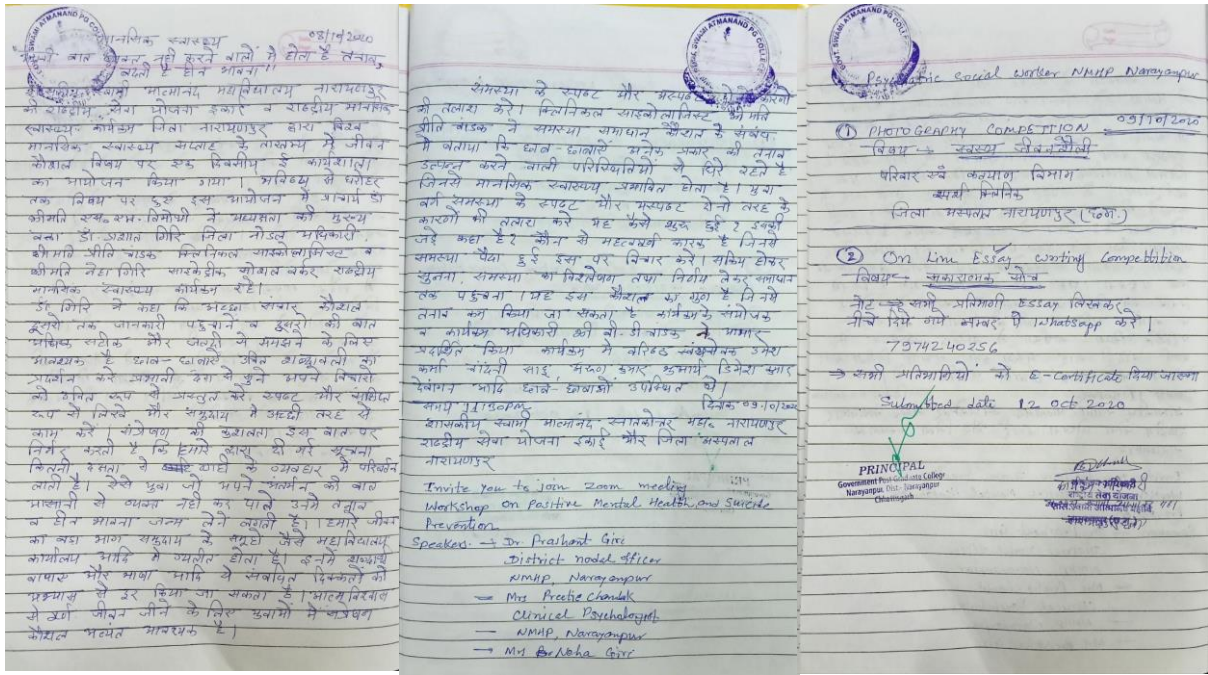 मानसिक स्वास्थ्य 08/10/2020
बात व्यक्त नही करने वालों मे होता है तनाव,
बढ़ती है हीन भावना"
स्वामी आत्मानंद महाविद्यालय नारायणपुर
की राष्ट्रीय सेवा योजना इकाई व राष्ट्रीय मानसिक
स्वास्थ्य कार्यक्रम जिला नारायणपुर द्वारा विश्व
मानसिक स्वास्थ्य सप्ताह के तारतम्य में जीवन
कौशल विषय पर एक दिवसीय ई कार्यशाला
का आयोजन किया गया। भविष्य से धरोहर
तक विषय पर हुए इस आयोजन में प्राचार्य डॉ
श्रीमति एस.आर. की अध्यक्षता की मुख्य
वक्ता डॉ. प्रशांत गिरि जिला नोडल अधिकारी,
श्रीमति प्रीति चांडक क्लिनिकल साइकोलॉजिस्ट व
श्रीमति नेहा गिरि सोशल वर्कर राष्ट्रीय
मानसिक स्वास्थ्य कार्यक्रम रहे।
डॉ गिरि ने कहा कि अच्छा संचार कौशल
दूसरो तक जानकारी पहुंचाने व दूसरों की बात
अधिक सटीक और जल्दी से समझने के लिए
आवश्यक है छात्र-छात्राएं उचित शब्दावली का
प्रदर्शन करे प्रभावी ढंग से सुने अपने विचारो
को उचित रूप से प्रस्तुत करे. स्पष्ट और संक्षिप्त
रूप से लिखे और समुदाय मे अच्छी तरह से
काम करें। संप्रेषण की कुशलता इस बात पर
निर्भर करती है कि हमारे द्वारा दी गई सूचना
कितनी क्षमता से के व्यवहार मे परिवर्तन
लाती है। ऐसे युवा जो अपने अंतर्मन की बात
आसानी से व्यक्त नही कर पाते उनमे तनाव
व हीन भावना जन्म लेने लगती है। हमारे जीवन
का बड़ा भाग समुदाय के समूहो जैसे महाविद्यालय
कार्यालय आदि मे व्यतीत होता है। इनमें
और भाषा आदि से संबंधित दिक्कतों को
अभ्यास से दूर किया जा सकता है। आत्म विश्वास
से पूर्ण जीवन जीने के लिए युवाओं मे संप्रेषण
कौशल अत्यंत आवश्यक है।
समस्या के स्पष्ट और अस्पष्ट कारणो
की तलाश करे। क्लिनिकल साइकोलॉजिस्ट श्रीमति
प्रीति चांडक ने समस्या समाधान कौशल के संबंध
में बताया कि छात्र-छात्राएं अनेक प्रकार की तनाव
उत्पन्न करने वाली परिस्थितियो से घिरे रहते है
जिनसे मानसिक स्वास्थ्य प्रभावित होता है। युवा
वर्ग समस्या के स्पष्ट और अस्पष्ट दोनो तरह के
कारणों की तलाश करे यह कैसे शुरू हुई? इसकी
जड़े कहा है? कौन से महत्वपूर्ण कारक है जिनसे
समस्या पैदा हुई इस पर विचार करे। सक्रिय होकर
सुनना, समस्या का विश्लेषण तथा निर्णय लेकर समाधान
तक पहुंचना। यह इस कौशल का गुण है जिनसे
तनाव कम किया जा सकता है कार्यक्रम के संयोजक
व कार्यक्रम अधिकारी श्री बी.डी चांडक ने आभार
प्रदर्शित किया कार्यक्रम मे वरिष्ठ स्वयंसेवक उमेश
कर्मा चांदनी साहू, कुमार डिगेश कुमार
देवांगन आदि छात्र-छात्राओं उपस्थित थे।
समय 11:30pm दिनांक 09.10/2020
शासकीय स्वामी आत्मानंद स्नातकोत्तर महा. नारायणपुर
राष्ट्रीय सेवा योजना इकाई और जिला अस्पताल
नारायणपुर
Invite you to join zoom meeting
Workshop On Positive Mental Health, and Suicide
Prevention
Speakers → Dr Prashant Giri
District nodal officer
NMHP, Narayanpur
— Mrs Preetie Chandak
Clinical Psychologist
— NMHP, Narayanpur
→ Mrs Neha Giri
Psychiatric Social worker NMHP Narayanpur
① PHOTOGRAPHY COMPETITION 09/10/2020
विषय → स्वस्थ जीवन शैली
परिवार एवं कल्याण विभाग
स्पर्श क्लिनिक
जिला अस्पताल नारायणपुर (छ.ग.)
② On Line Essay writing Compettition
विषय → सकारात्मक सोच
नोट → सभी प्रतिभागी Essay लिखकर
नीचे दिये गये नम्बर पे Whatsapp करे।
7974240256
→ सभी प्रतिभागियों को E-Certificate दिया जाएगा
Submitted date 12 Oct 2020
PRINCIPAL
Government Post-Graduate College
Narayanpur, Dist.- Narayanpur
Chhattisgarh
कार्यक्रम अधिकारी
राष्ट्रीय सेवा योजना